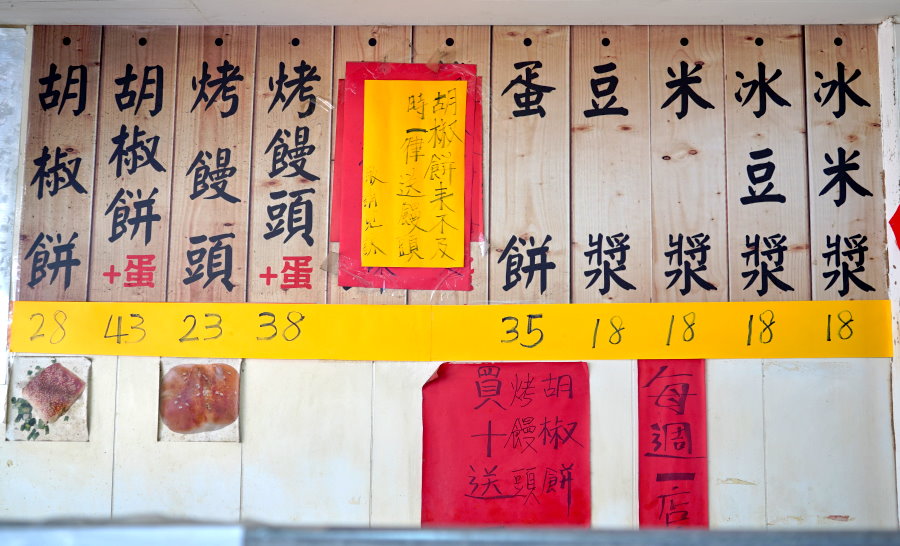 胡椒餅
胡椒餅+蛋
烤饅頭
烤饅頭+蛋
胡椒餅來不及
時一律送饅頭
蛋餅
豆漿
米漿
冰豆漿
冰米漿
28 43 23 38 35 18 18 18 18
胡椒餅
烤饅頭
買十送
每週一店